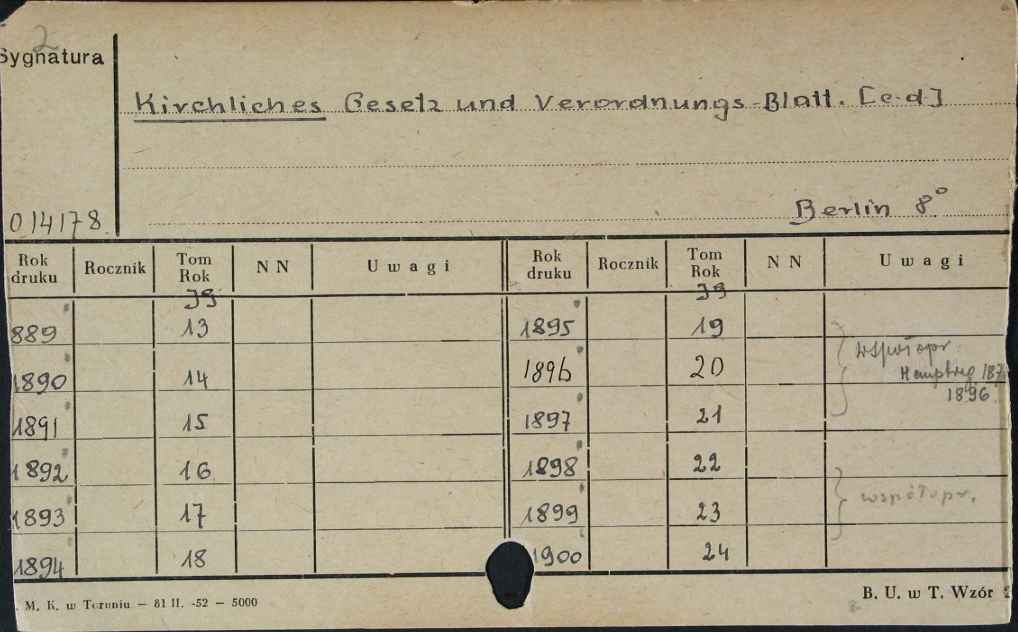 2
Sygnatura
Kirchliches Gesetz und Verordnungs-Blatt. [c.d]
Berlin 8°
014178.
Rok druku Rocznik Tom Rok NN Uwagi Rok druku Rocznik Tom Rok NN Uwagi
Jg Jg
889 13 1895 19
1890 14 1896 20 współopr. Hauptreg 187
1896.
1891 15 1897 21
1892 16 1898 22
1893 17 1899 23 współopr.
1894 18 1900 24
M. K. w Toruniu — 81 II. -52 — 5000
B. U. w T. Wzór